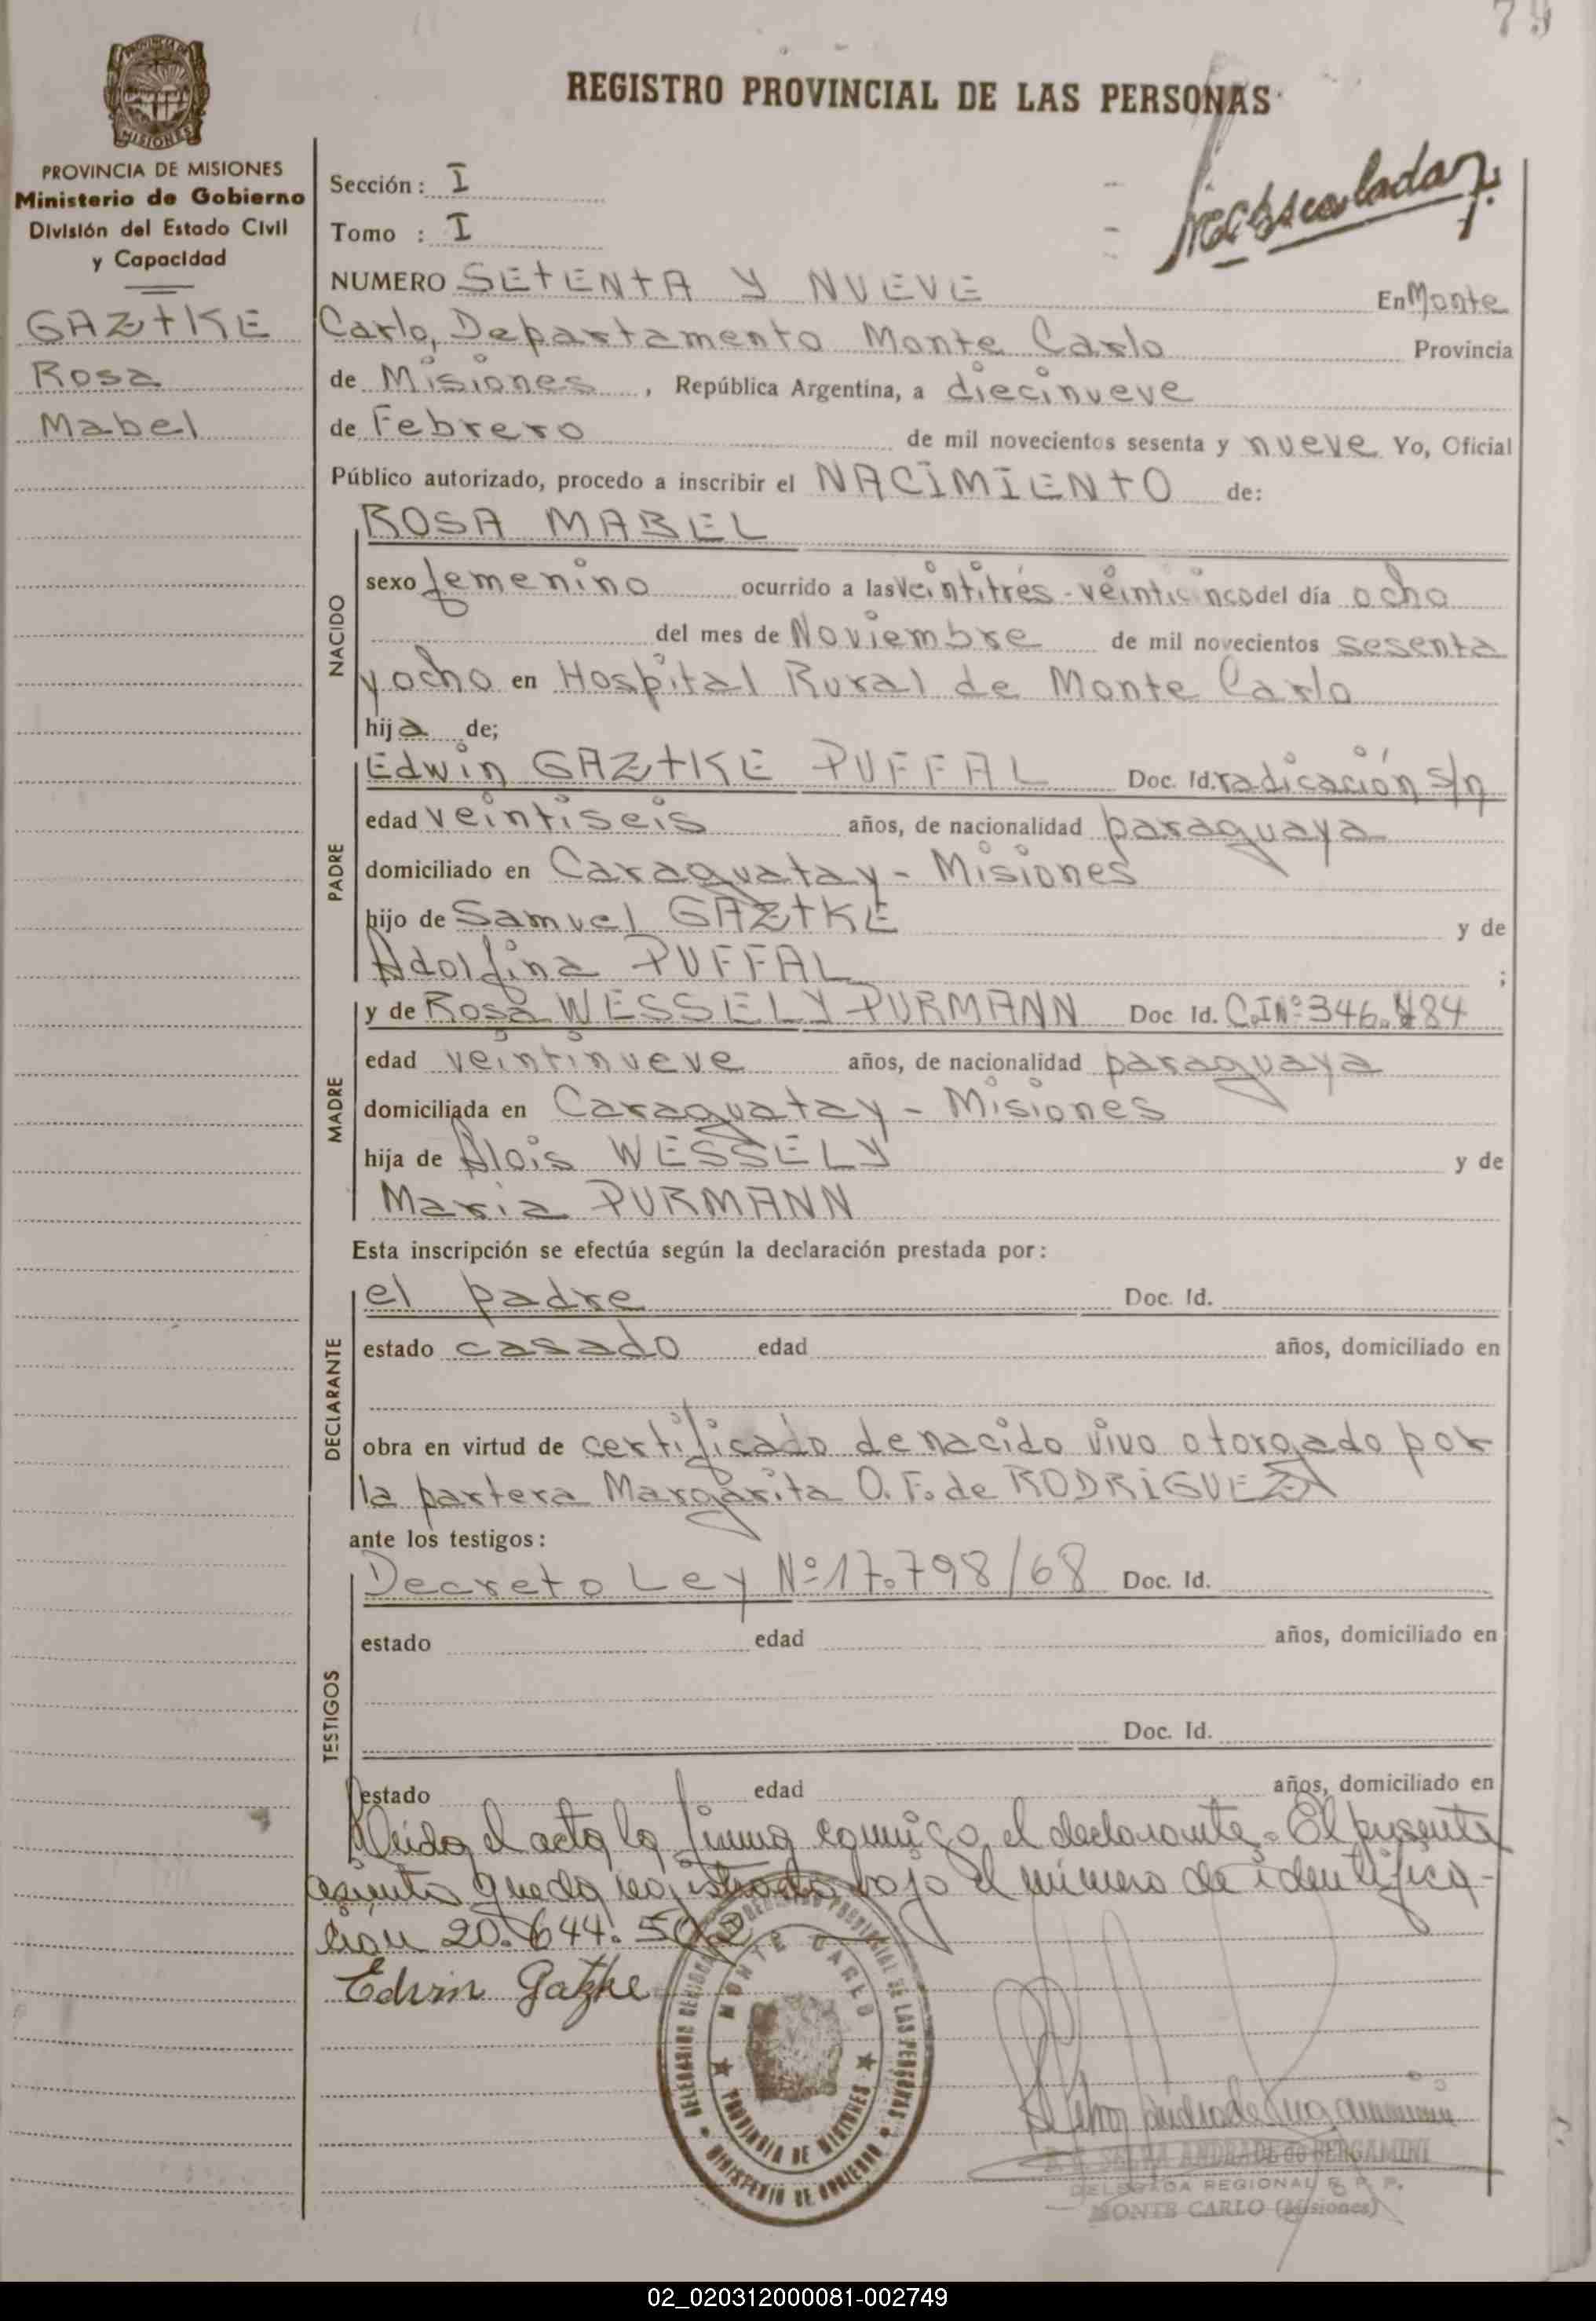 79
REGISTRO PROVINCIAL DE LAS PERSONAS
PROVINCIA DE MISIONES
MISIONES
PROVINCIA DE MISIONES
Ministerio de Gobierno
División del Estado Civil
y Capacidad
GAZTKE
Rosa
Mabel
Sección: I
Tomo : I
NUMERO SETENTA Y NUEVE En Monte
Carlo, Departamento Monte Carlo Provincia
de Misiones, República Argentina, a diecinueve
de Febrero de mil novecientos sesenta y nueve Yo, Oficial
Público autorizado, procedo a inscribir el NACIMIENTO de:
NACIDO
ROSA MABEL
sexo femenino ocurrido a las veintitrés-veinticinco del día ocho
del mes de Noviembre de mil novecientos sesenta
y ocho en Hospital Rural de Monte Carlo
hija de;
PADRE
Edwin GAZTKE PUFFAL Doc. Id. radicación s/n
edad veintiseis años, de nacionalidad paraguaya
domiciliado en Caraguatay - Misiones
hijo de Samuel GAZTKE y de
Adolfina PUFFAL ;
MADRE
y de Rosa WESSELY PURMANN Doc Id. C.I Nº 346.484
edad veintinueve años, de nacionalidad paraguaya
domiciliada en Caraguatay - Misiones
hija de Alois WESSELY y de
Maria PURMANN
Esta inscripción se efectúa según la declaración prestada por:
DECLARANTE
el padre Doc. Id.
estado casado edad años, domiciliado en
obra en virtud de certificado de nacido vivo otorgado por
la partera Margarita O. F. de RODRIGUEZ
ante los testigos:
TESTIGOS
Decreto Ley Nº 17.798/68 Doc. Id.
estado edad años, domiciliado en
Doc. Id.
estado edad años, domiciliado en
Leida el acta la firma conmigo el declarante. El presente
asiento queda registrado bajo el número de identifica-
ción 20.644.502
Edwin Gatzke
DELEGACION REGIONAL REGISTRO PROVINCIAL DE LAS PERSONAS
MONTE CARLO
PROVINCIA DE MISIONES
MINISTERIO DE GOBIERNO
SELVA ANDRADE de BERGAMINI
DELEGADA REGIONAL R. P. P.
MONTE CARLO (Misiones)
02_020312000081-002749